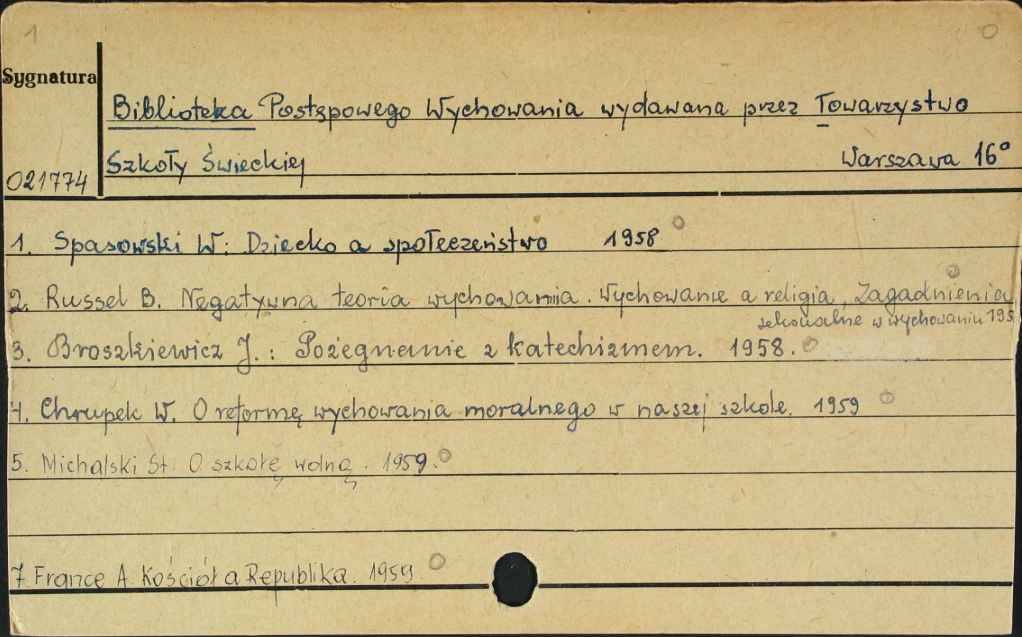 1
Sygnatura
Biblioteka Postępowego Wychowania wydawana przez Towarzystwo
Szkoły Świeckiej Warszawa 16°
021774
1. Spasowski W: Dziecko a społeczeństwo 1958
2. Russel B. Negatywna teoria wychowania. Wychowanie a religia. Zagadnienia
seksualne w wychowaniu 195
3. Broszkiewicz J.: Pożegnanie z katechizmem. 1958.
4. Chrupek W. O reformę wychowania moralnego w naszej szkole. 1959
5. Michalski St. O szkołę wolną. 1959.
7. France A. Kościół a Republika. 1959